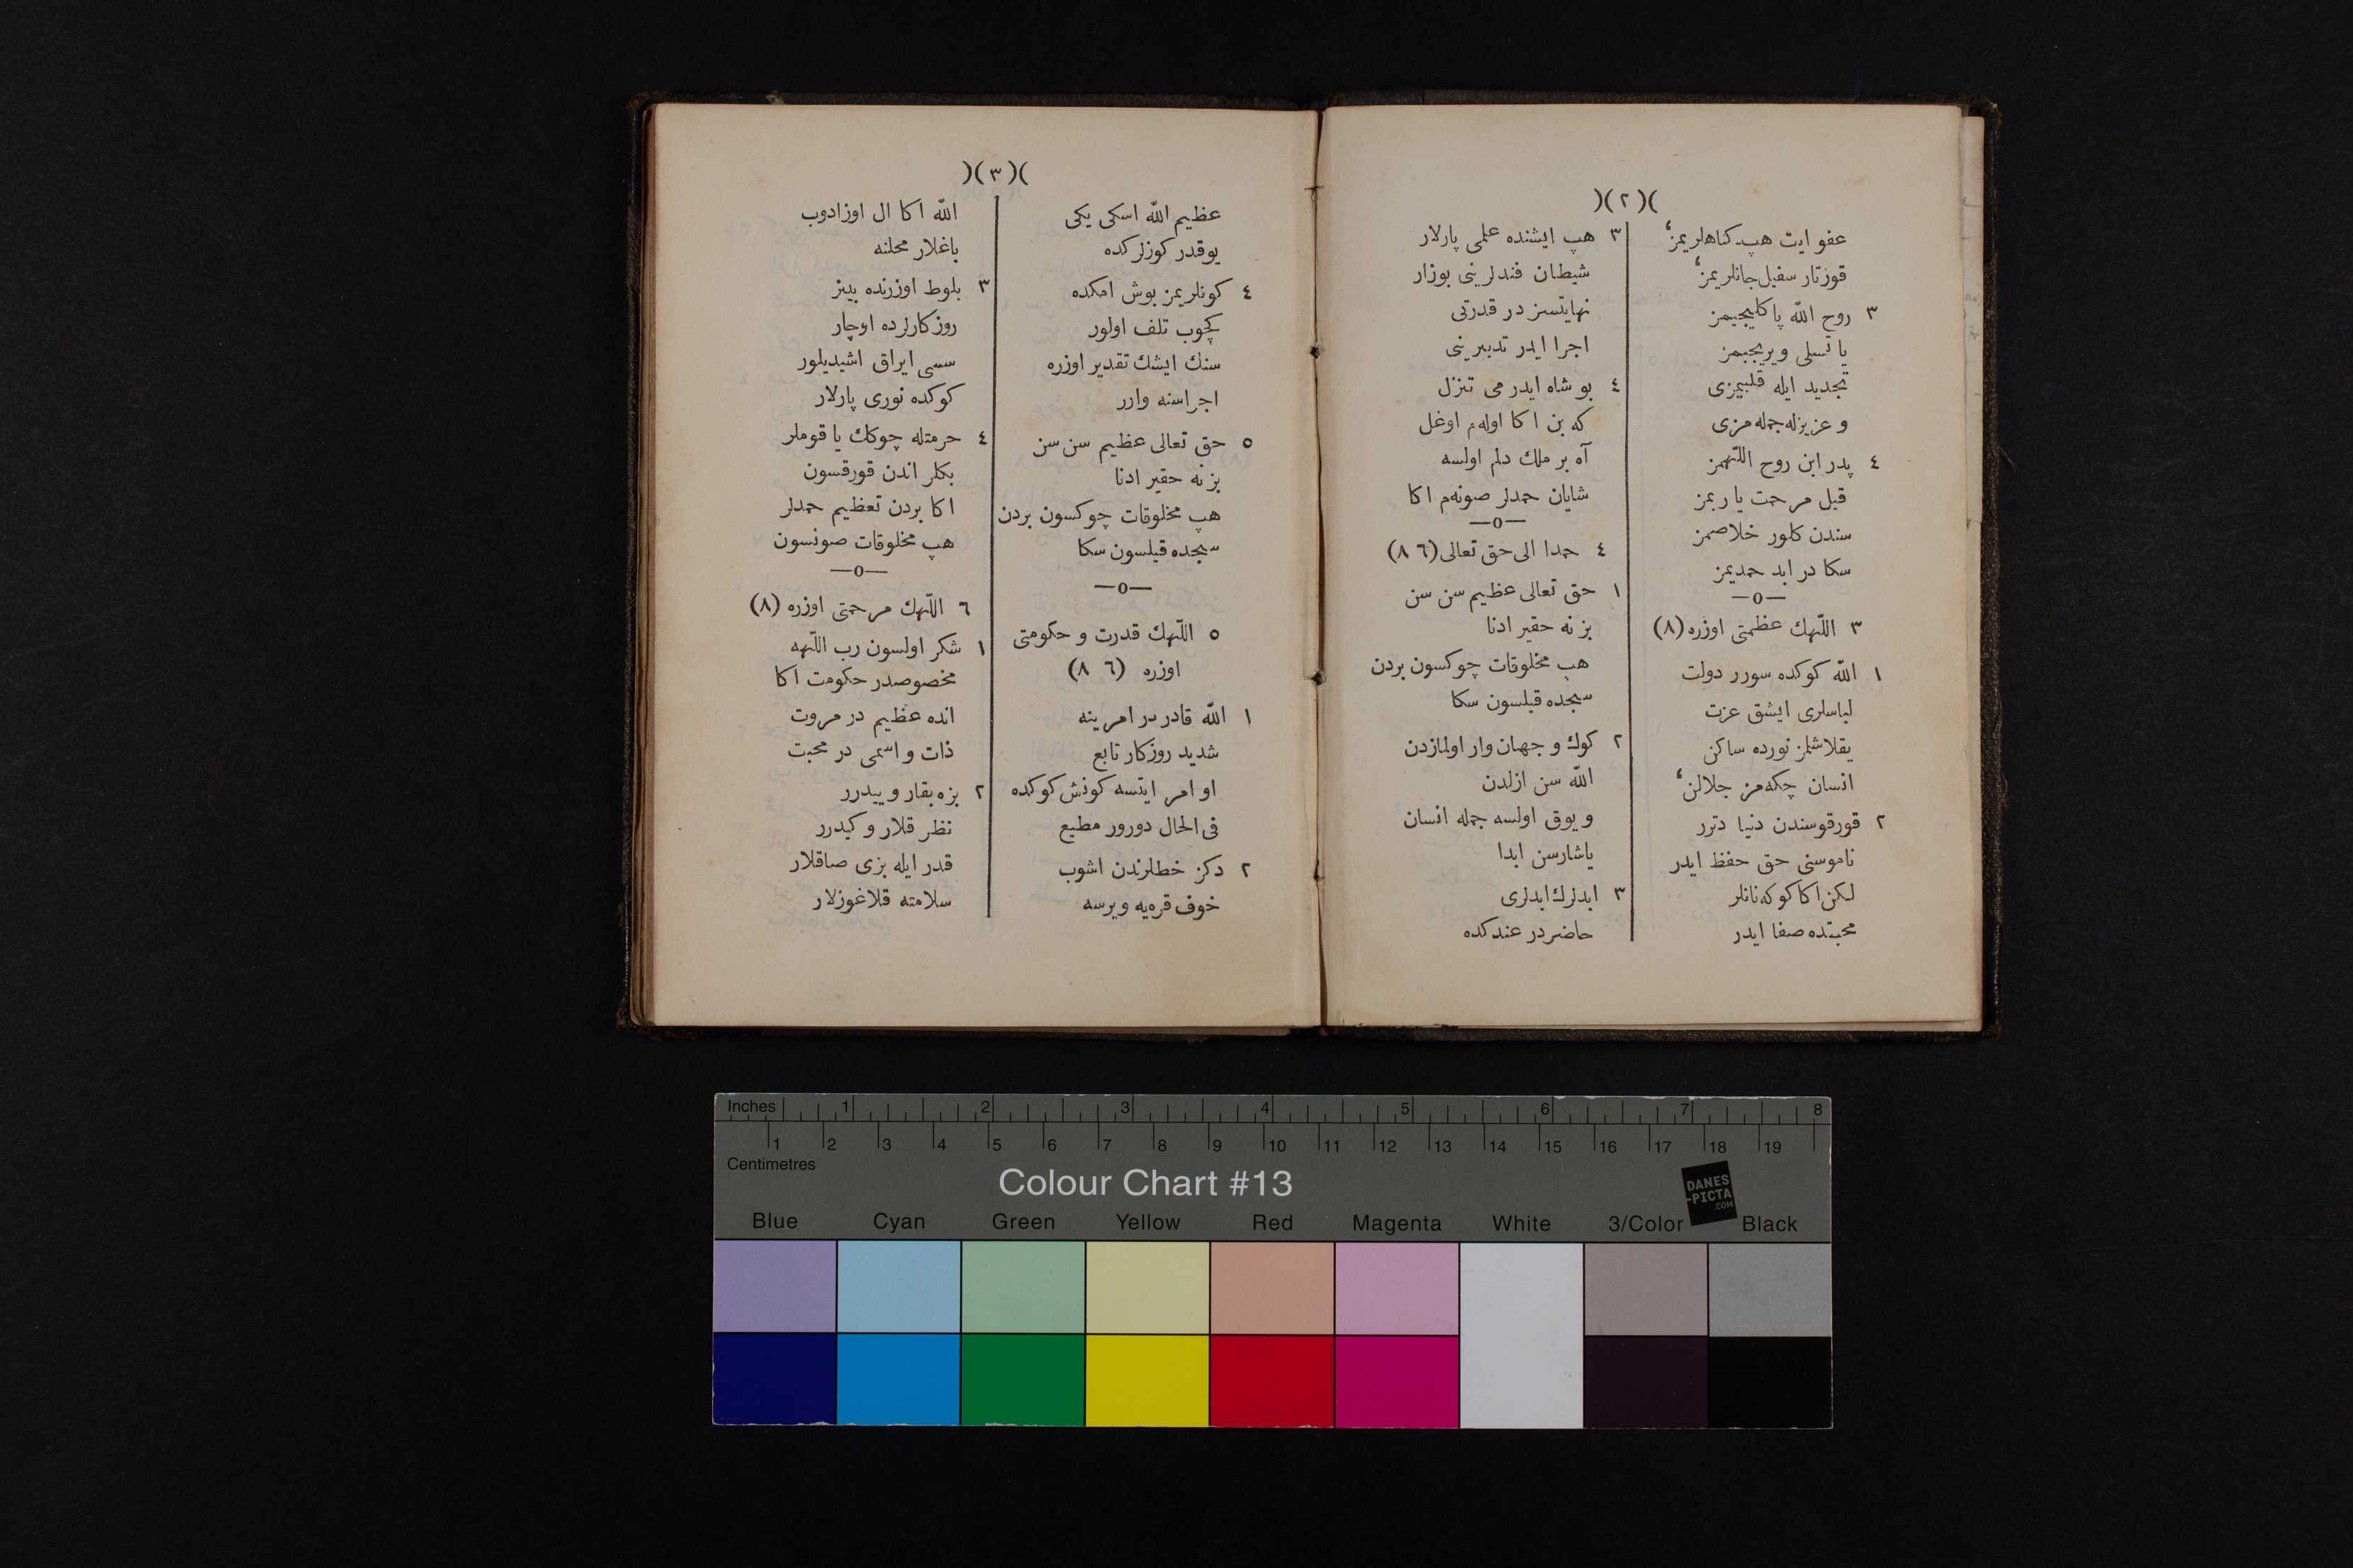 )(٢)(
عفو ایت هپ كناهلریمز ٔ
قوزتار سفیل جانلریمز ٔ
٣ روح اللّه پاكلییجیمز
یا تسلی ویریجیمز
تجدید ایله قلبیمزی
و عزیزله جمله مزی
٤ پدر ابن روح اللّهمز
قیل مرحمت یا ربمز
سندن كلور خلاصمز
سكا در ابد حمدیمز
—o—
٣ اللّهك عظمتی اوزره (٨)
١ اللّه كوكده سورر دولت
لباسلری ایشق عزت
یقلاشلمز نورده ساكن
انسان چكه مز جلالن ٔ
٢ قورقوسندن دنیا دترر
ناموسنی حق حفظ ایدر
لكن اكا كوكه نانلر
محبتده صفا ایدر
٣ هپ ایشنده علمی پارلار
شیطان فندلرینی بوزار
نهایتسز در قدرتی
اجرا ایدر تدبیرینی
٤ بو شاه ایدر می تنزل
كه بن اكا اوله م اوغل
آه بر ملك دلم اولسه
شایان حمدلر صونه م اكا
—o—
٤ حمدا الی حق تعالی (٨ ٦)
١ حق تعالی عظیم سن سن
بز نه حقیر ادنا
هپ مخلوقات چوكسون بردن
سجده قیلسون سكا
٢ كوك و جهان وار اولمازدن
اللّه سن ازلدن
و یوق اولسه جمله انسان
یاشارسن ابدا
٣ ابدلرك ابدلری
حاضر در عندكده
)(٣)(
عظیم اللّه اسكی یكی
یوقدر كوزلركده
٤ كونلریمز بوش امكده
كچوب تلف اولور
سنك ایشك تقدیر اوزره
اجراسنه وارر
٥ حق تعالی عظیم سن سن
بز نه حقیر ادنا
هپ مخلوقات چوكسون بردن
سجده قیلسون سكا
—o—
٥ اللّهك قدرت و حكومتی
اوزره (٨ ٦)
١ اللّه قادر در امرینه
شدید روزكار تابع
او امر ایتسه كونش كوكده
فی الحال دورور مطیع
٢ دكز خطلرندن اشوب
خوف قره یه ویرسه
اللّه اكا ال اوزادوب
باغلار محلنه
٣ بلوط اوزرنده بینز
روزكارلرده اوچار
سسی ایراق اشیدیلور
كوكده نوری پارلار
٤ حرمتله چوكك یا قوملر
بكلر اندن قورقسون
اكا بردن تعظیم حمدلر
هپ مخلوقات صونسون
—o—
٦ اللّهك مرحمتی اوزره (٨)
١ شكر اولسون رب اللّهه
مخصوصدر حكومت اكا
انده عظیم در مروت
ذات و اسمی در محبت
٢ بزه بقار و ییدرر
نظر قلار و كیدرر
قدر ایله بزی صاقلار
سلامته قلاغوزلار
Inches 1 2 3 4 5 6 7 8
1 2 3 4 5 6 7 8 9 10 11 12 13 14 15 16 17 18 19
Centimetres
Colour Chart #13
DANES
-PICTA
.COM
Blue Cyan Green Yellow Red Magenta White 3/Color Black